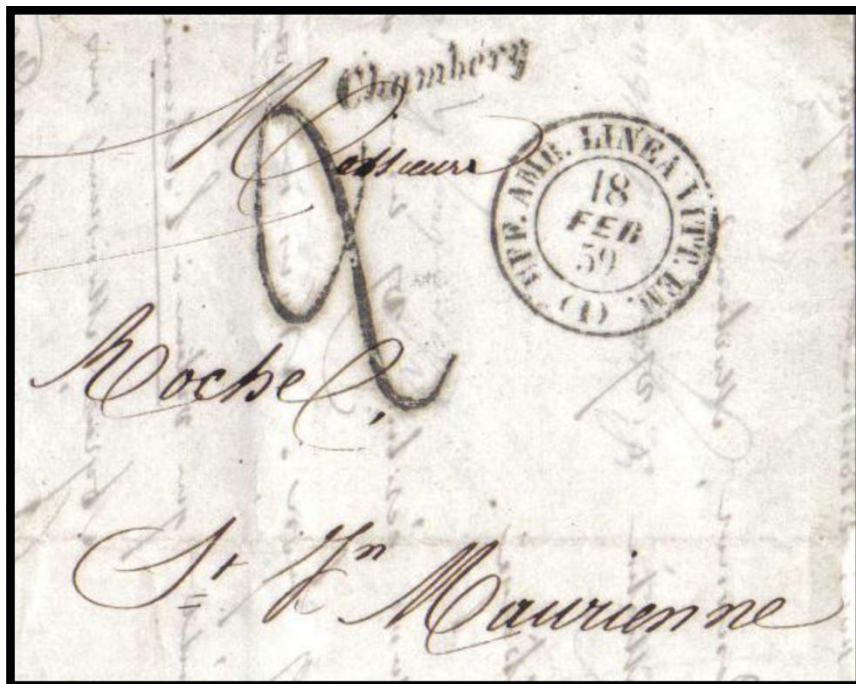 Chambéry
Messieurs
UFF. AMB. LINEA VITT. EM. (1)
18
FEB
59
2
Roche
St Jn Maurienne